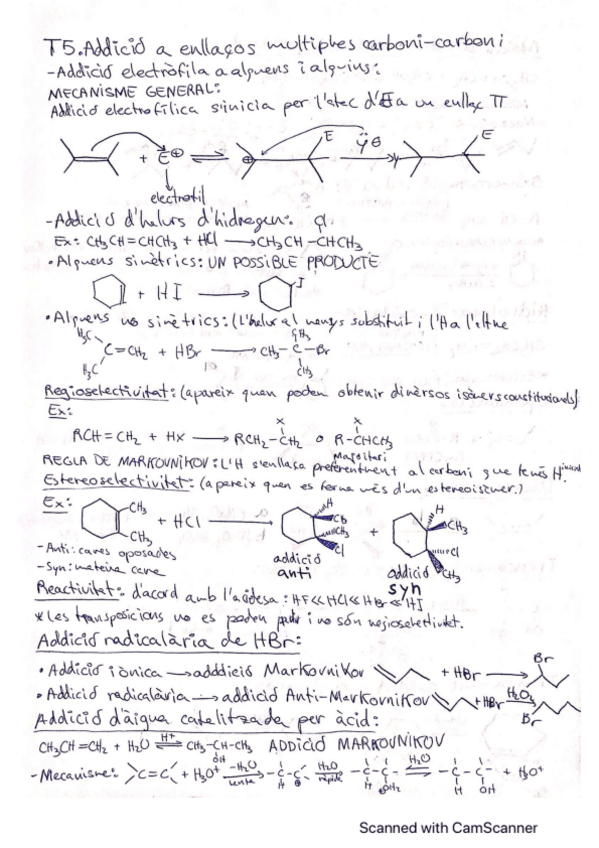 T5. Addició a enllaços multiples carboni-carboni
-Addició electròfila a alquens i alquins:
MECANISME GENERAL:
Addició electrofílica s'inicia per l'atec d'E a un enllaç π
+ E⊕ ⇌ ⊕ E Ÿ⊖ → E
electrofil
-Addició d'halurs d'hidrogen: Cl
Ex: CH₃CH=CHCH₃ + HCl → CH₃CH-CHCH₃
• Alquens simètrics: UN POSSIBLE PRODUCTE
+ HI → I
• Alquens no simètrics: (L'halur al menys substituit i l'H a l'altre
H₃C CH₃
C=CH₂ + HBr → CH₃-C-Br
H₃C CH₃
Regioselectivitat: (apareix quan poden obtenir diversos isòmers constitucionals)
Ex: X X
RCH=CH₂ + HX → RCH₂-CH₂ o R-CHCH₃
Majoritari
REGLA DE MARKOVNIKOV: L'H s'enllaça preferentment al carboni que te més H inicial
Estereoselectivitat: (apareix quan es forma més d'un estereoisomer.)
Ex: CH₃ H H
+ HCl → CH₃ + CH₃
CH₃ Cl CH₃ Cl
-Anti: cares oposades addició CH₃
-Syn: mateixa cara anti addició
syn
Reactivitat: d'acord amb l'acidesa: HF<<HCl<<HBr<<HI
*Les transposicions no es poden i no són
Addició radicalària de HBr:
• Addició iònica → adddició Markovnikov + HBr → Br
• Addició radicalària → addició Anti-Markovnikov + HBr H₂O₂ → Br
Addició d'àigua catalitzada per àcid:
CH₃CH=CH₂ + H₂O H⁺ ⇌ CH₃-CH-CH₃ ADDICIÓ MARKOVNIKOV
OH
-Mecanisme: C=C + H₃O⁺ -H₂O lenta -C-C- H₂O ràpida -C-C- H₂O ⇌ -C-C- + H₃O⁺
⊕ H ⊕OH₂ H OH
Scanned with CamScanner